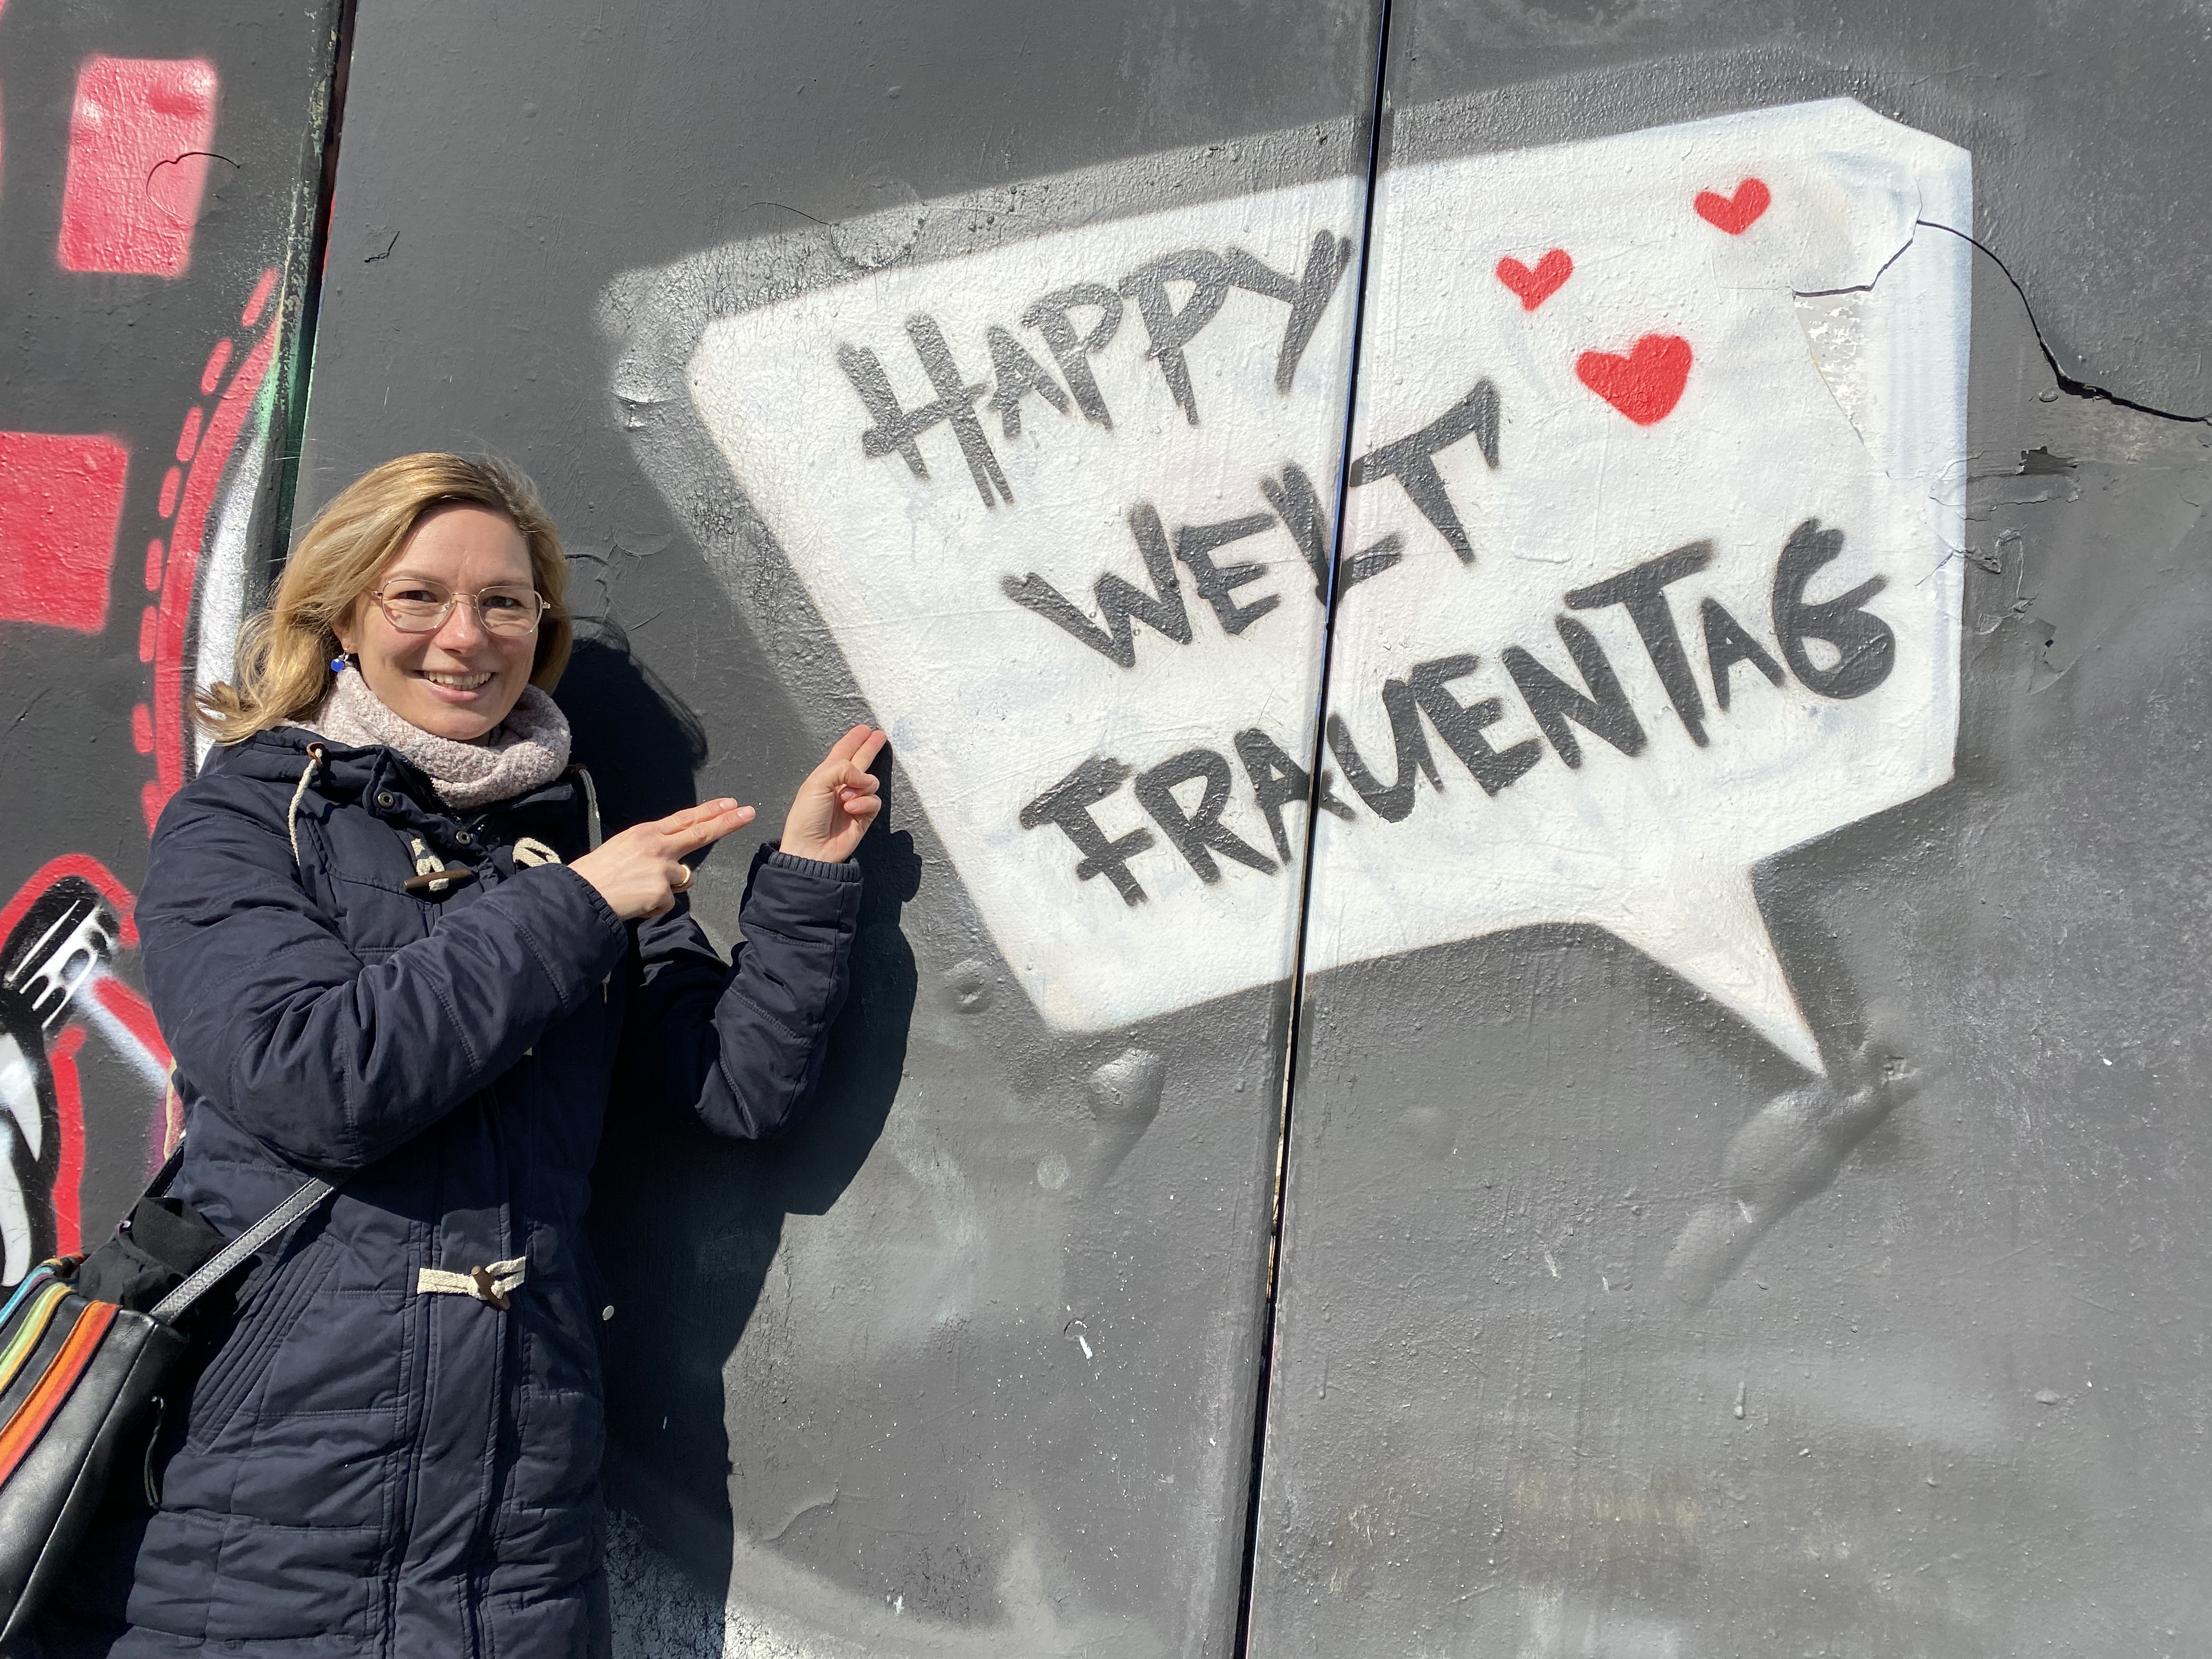 HAPPY
WELT
FRAUENTAG